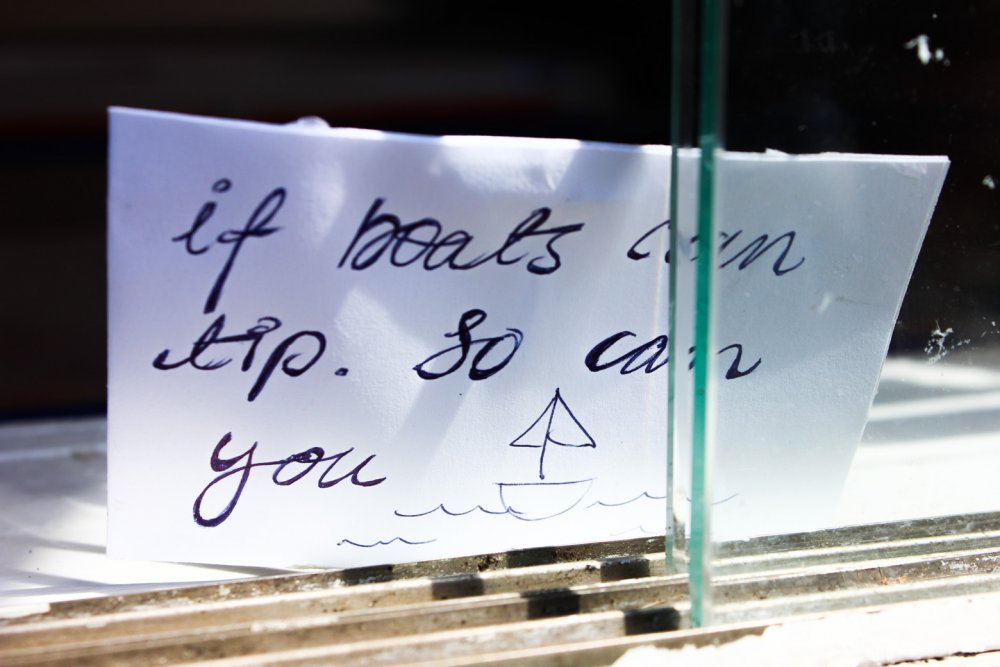 if boats can
tip. So can
you